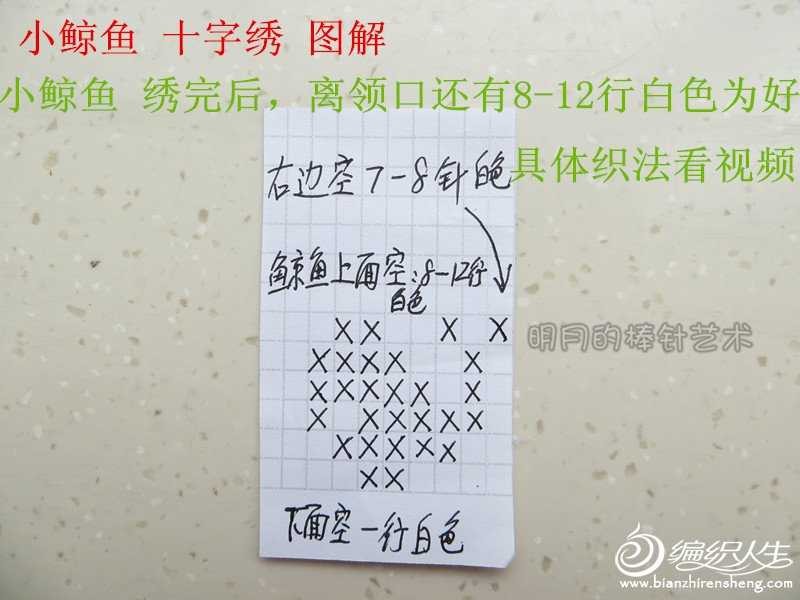 小鲸鱼 十字绣 图解
小鲸鱼 绣完后，离领口还有8-12行白色为好
具体织法看视频
右边空7-8针白色
鲸鱼上面空:8-12行
白色
X X X X
X X X X X
X X X X X X
X X X X X X
X X X X X
X X
下面空一行白色
明月的棒针艺术
编织人生
www.bianzhirensheng.com